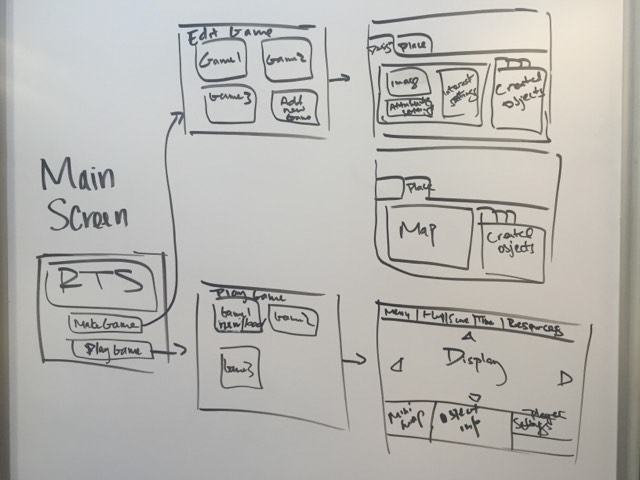 Main
Screen
RTS
Make Game
Play Game
Edit Game
Game1
Game2
Game3
Add
new
Game
Place
Image
Attribute
setting
Interact
setting
Created
objects
Place
Map
Created
objects
Play Game
Game1
new/load
Game2
Game3
Menu
Time
Resources
Display
Mini
map
Object
info
Player
Settings